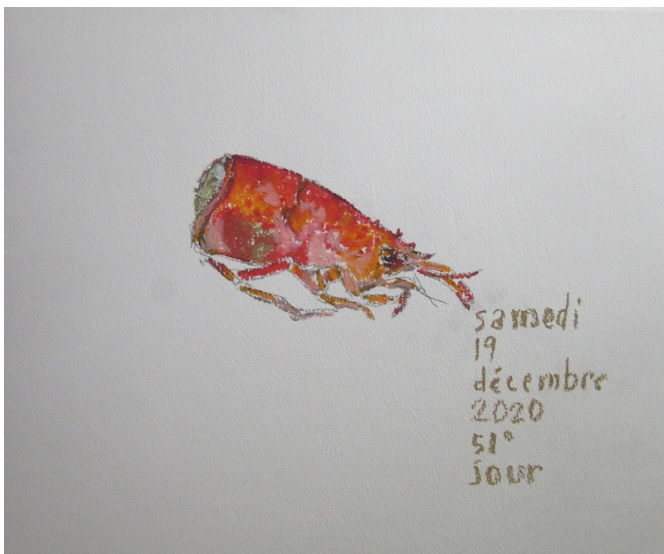 samedi
19
décembre
2020
51°
jour